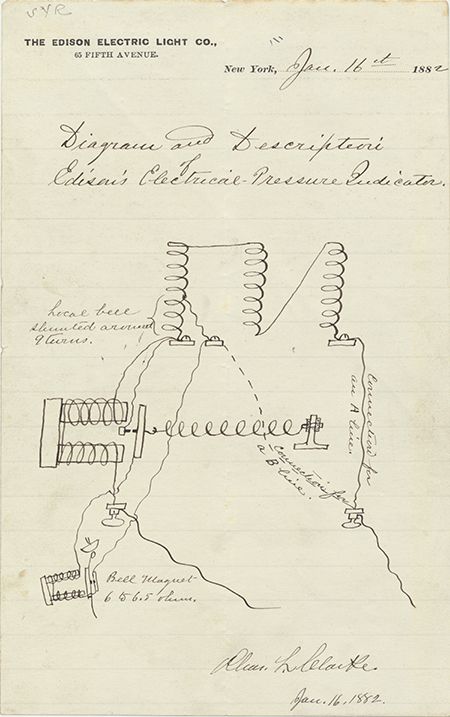 SVR
THE EDISON ELECTRIC LIGHT CO.,
65 FIFTH AVENUE.
New York, Jan. 16th 1882
Diagram and Description
of
Edison's Electrical-Pressure Indicator.
Local bell
shunted around
9 turns.
Connection for
an A line.
Connection for
a B line.
Bell Magnet
6 to 6.5 ohms.
Chas. L. Clarke.
Jan. 16, 1882.